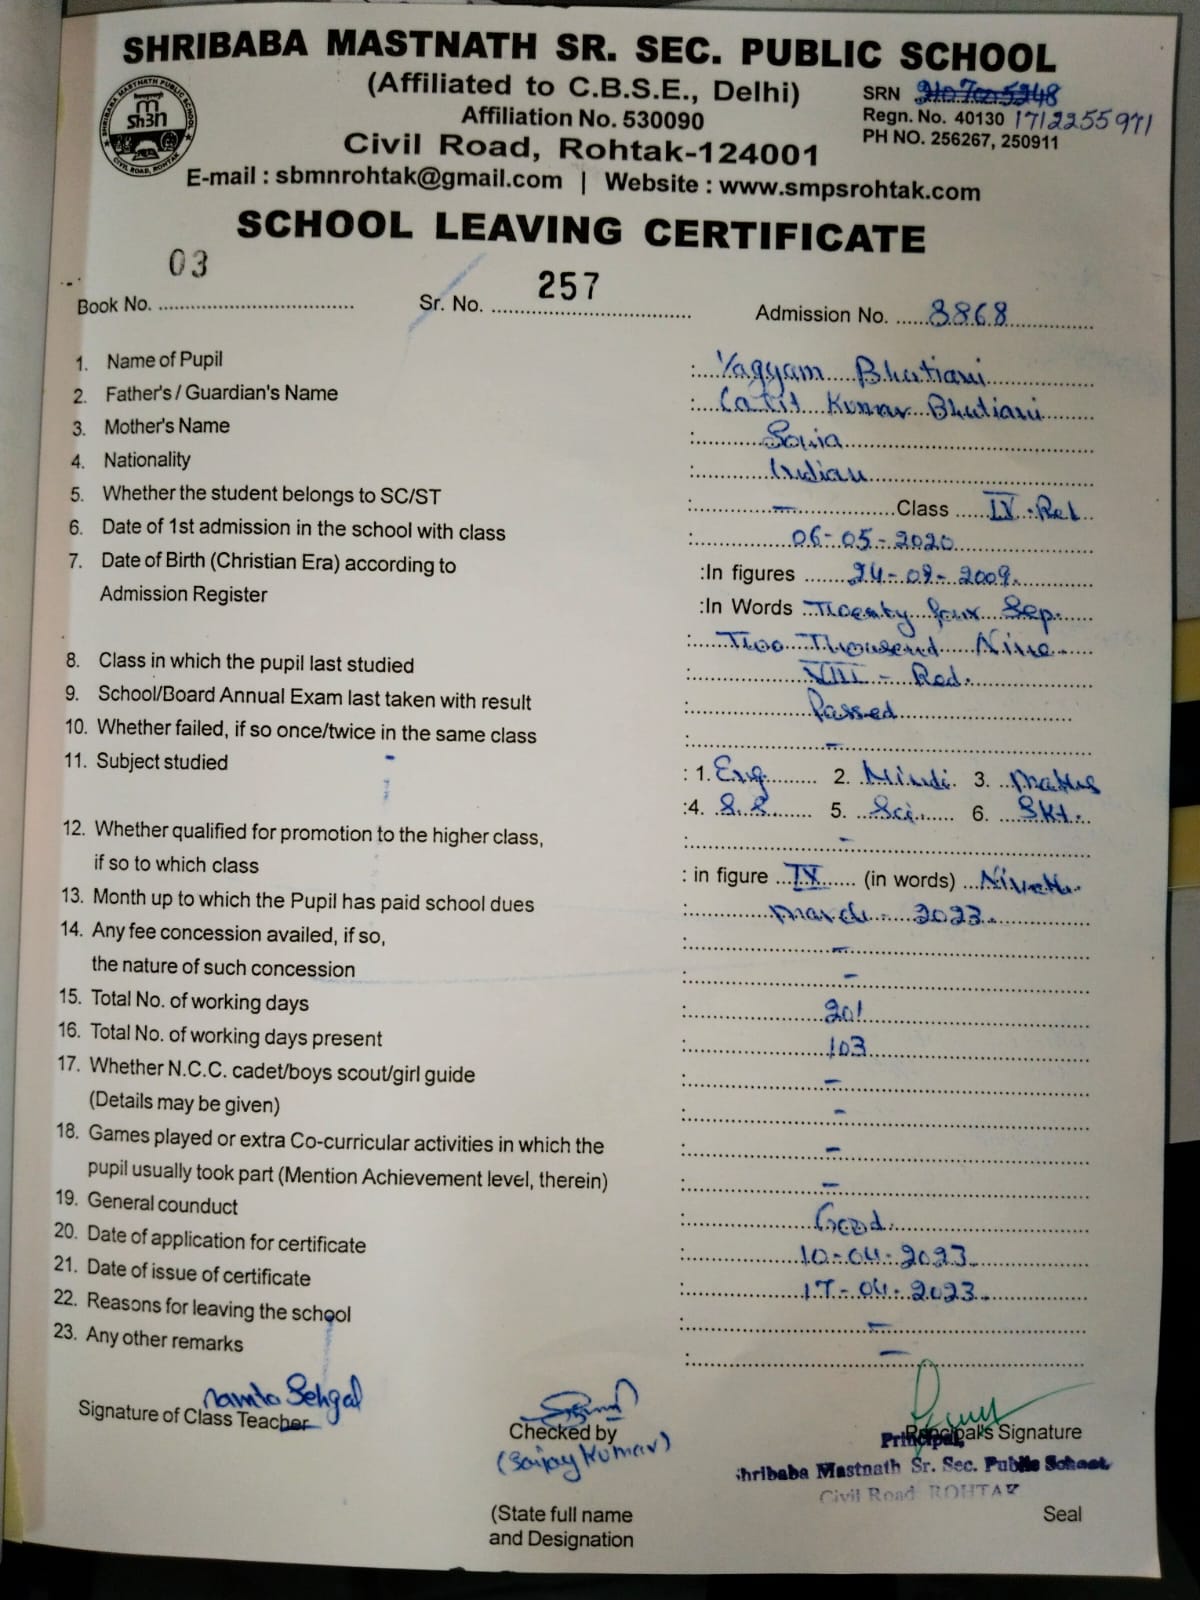 SHRIBABA MASTNATH SR. SEC. PUBLIC SCHOOL
(Affiliated to C.B.S.E., Delhi)
SRN
Affiliation No. 530090
Regn. No. 40130 1712255971
Civil Road, Rohtak-124001
PH NO. 256267, 250911
E-mail : sbmnrohtak@gmail.com | Website : www.smpsrohtak.com
SCHOOL LEAVING CERTIFICATE
Book No. 03 Sr. No. 257 Admission No. 8868
1. Name of Pupil : Yagyam Bhutiani
2. Father's / Guardian's Name : Lalit Kumar Bhutiani
3. Mother's Name : Sonia
4. Nationality : Indian
5. Whether the student belongs to SC/ST : – Class IV-Red
6. Date of 1st admission in the school with class : 06-05-2020
7. Date of Birth (Christian Era) according to :In figures 24-09-2009
Admission Register :In Words Twenty four Sep.
: Two Thousand Nine
8. Class in which the pupil last studied : VIII - Red.
9. School/Board Annual Exam last taken with result : Passed
10. Whether failed, if so once/twice in the same class : –
11. Subject studied : 1. Eng 2. Hindi 3. Maths
:4. S.S 5. Sci. 6. Skt.
12. Whether qualified for promotion to the higher class, : –
if so to which class : in figure IX (in words) Nineth
13. Month up to which the Pupil has paid school dues : March - 2023
14. Any fee concession availed, if so, : –
the nature of such concession : –
15. Total No. of working days : 201
16. Total No. of working days present : 103
17. Whether N.C.C. cadet/boys scout/girl guide : –
(Details may be given) : –
18. Games played or extra Co-curricular activities in which the : –
pupil usually took part (Mention Achievement level, therein) : –
19. General counduct : Good.
20. Date of application for certificate : 10-04-2023
21. Date of issue of certificate : 17-04-2023
22. Reasons for leaving the school : –
23. Any other remarks : –
Namta Sehgal
Signature of Class Teacher Checked by Principal's Signature
(Sanjay Kumar) Principal,
Shribaba Mastnath Sr. Sec. Public School
Civil Road ROHTAK
(State full name Seal
and Designation